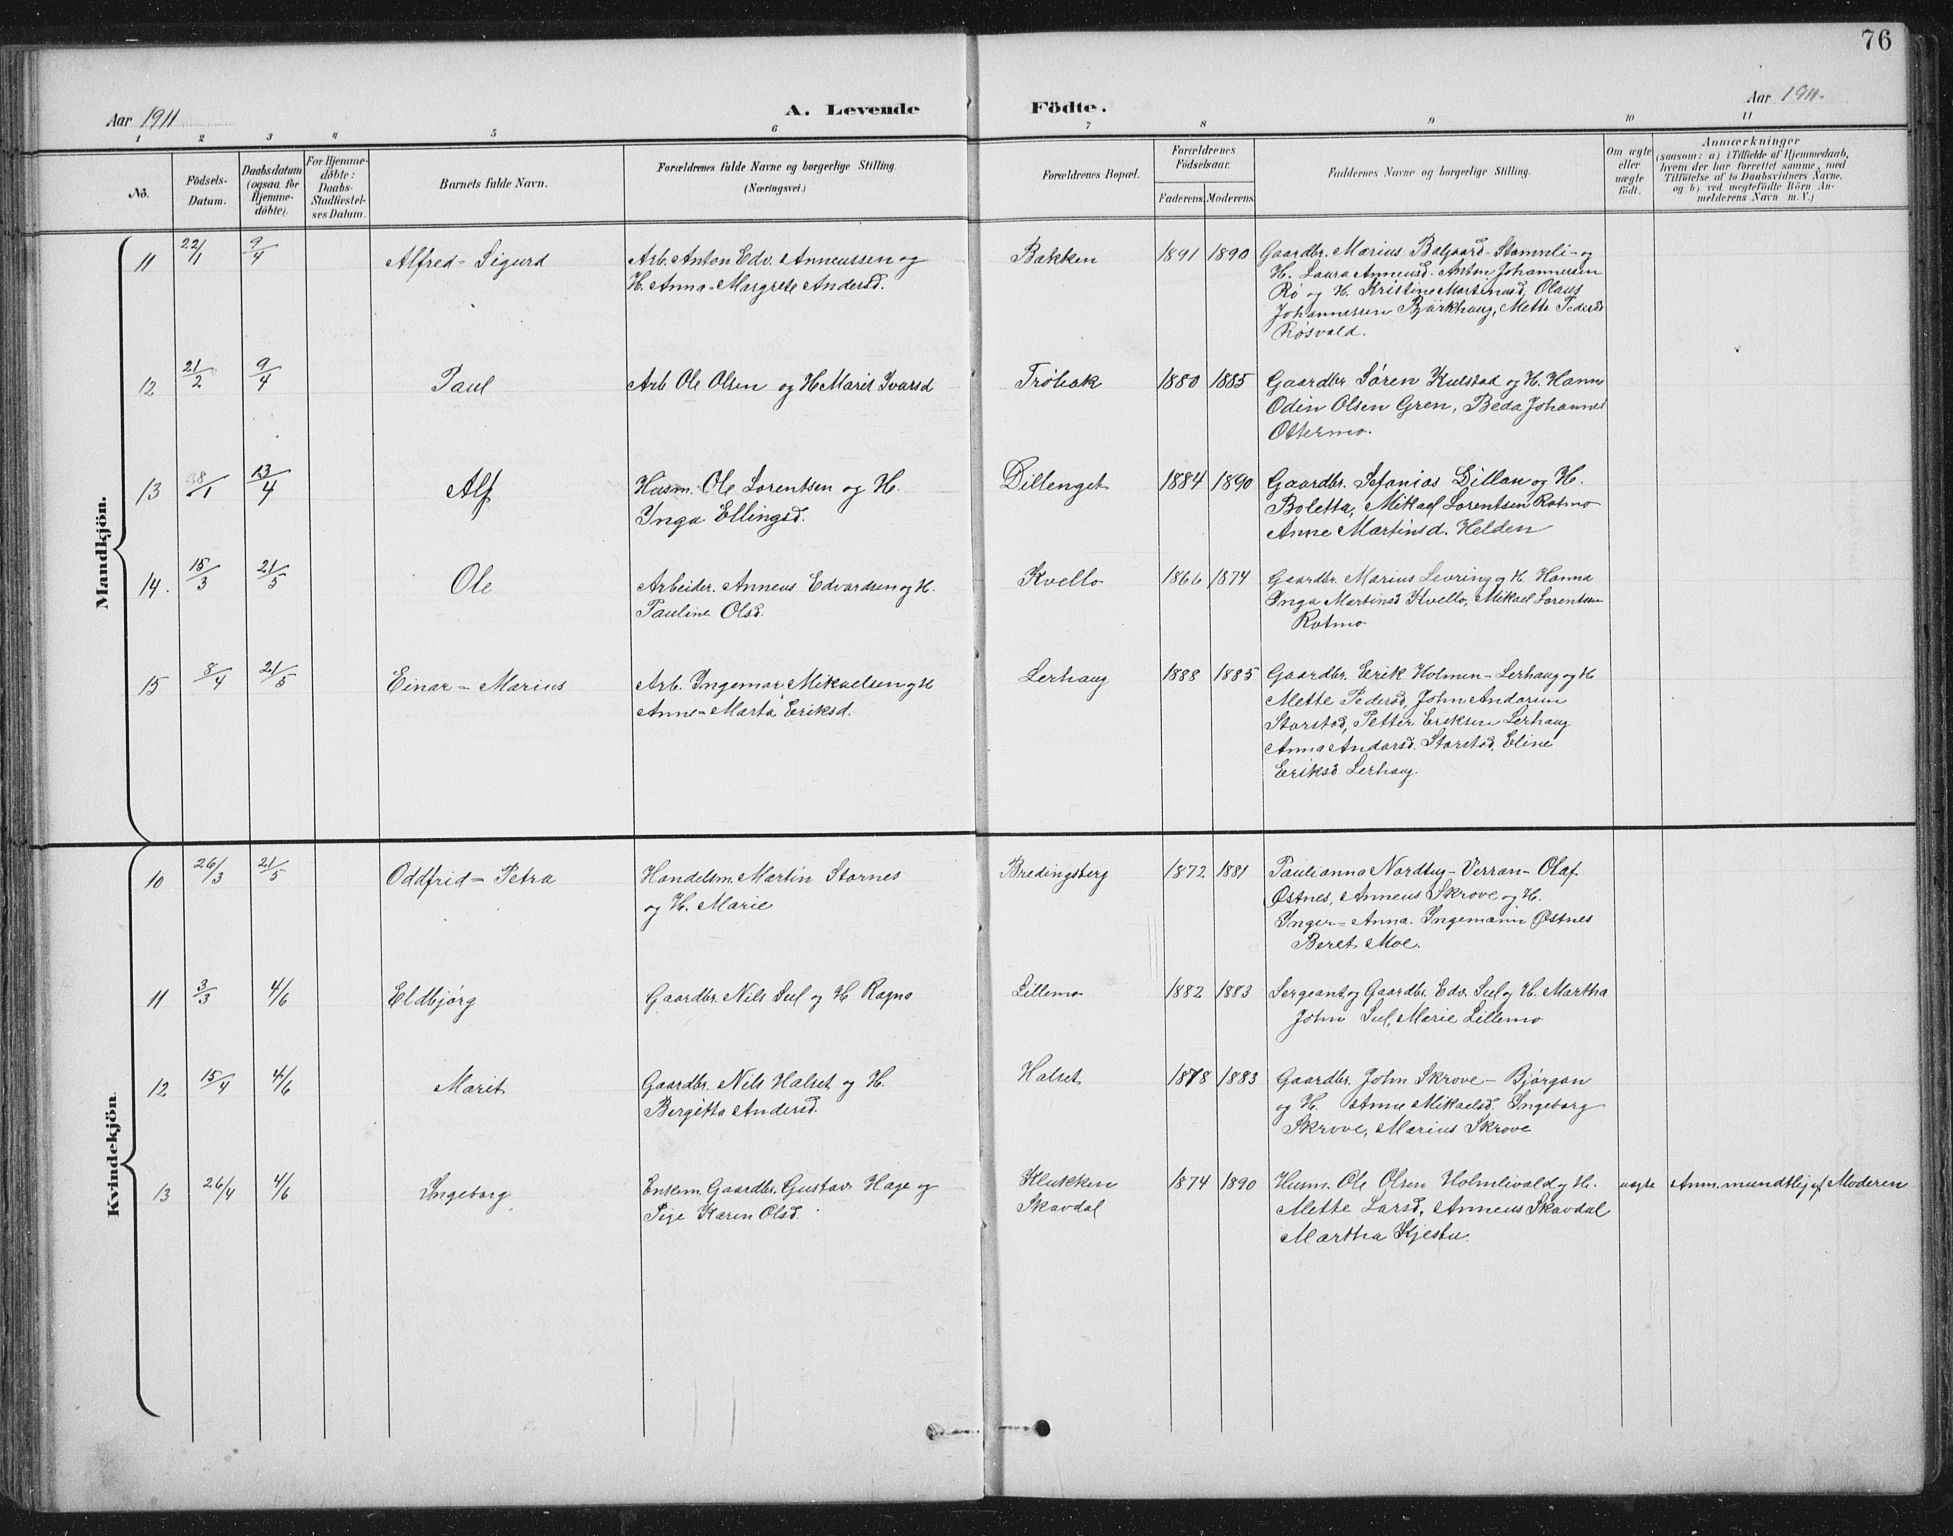 76
Aar 1911
A. Levende Födte.
Aar 1911.
1 2 3 4 5 6 7 8 9 10 11
No.
Födsels-Datum.
Daabsdatum (ogsaa for Hjemme-döbte).
For Hjemme-döbte: Daabs-Stadfæstel-ses Datum.
Barnets fulde Navn.
Forældrenes fulde Navne og borgerlige Stilling.
(Næringsvei.)
Forældrenes Bopæl.
Forældrenes Födselsaar.
Faderens. Moderens.
Faddernes Navne og borgerlige Stilling.
Om ægte eller uægte födt.
Anmærkninger
(saasom: a) i Tilfælde af Hjemmedaab,
hvem der har forrettet samme, med
Tilföielse af to Daabsvidners Navne,
og b) ved uægtefödte Börn An-
melderens Navn m. V.)
Mandkjön.
11 22/1 9/4 Alfred-Sigurd Arb. Anton Edv. Anneussen og Bakken 1891 1890 Gaardbr. Marius Balgaard-Stamnli- og
H. Anna-Margrete Andersd. H. Laura Anneusd. Anton Johannessen
Rø og H. Kristine Martinusd, Olaus
Johannessen Bjørkhaug, Mette Pedersd
Røsvald.
12 21/2 9/4 Paul Arb Ole Olsen og H Marit Ivarsd Trøhak 1880 1885 Gaardbr Søren Kulstad og H. Hanna
Odin Olsen Gren, Beda Johannesd
Ottermo.
13 28/1 13/4 Alf Husm. Ole Lorentsen og H. Dillenget 1884 1890 Gaardbr. Sefanias Dillan og H.
Inga Ellingsd. Boletta, Mikael Lorentsen Rotmo
Anne Martinsd. Helden
14. 15/3 21/5 Ole Arbeider. Anneus Edvardsen og H. Kvello 1866 1874 Gaardbr. Marius Levring og H. Hanna
Pauline Olsd. Inga Martinsd Kvello, Mikael Lorentsen
Rotmo
15 8/4 21/5 Einar-Marius Arb. Ingemar Mikaelsen og H Lerhaug 1888 1885 Gaardbr. Erik Holmen-Lerhaug og H
Anne-Marta Eriksd. Mette Pedersd, John Andersen
Storstad, Petter Eriksen Lerhaug
Anna Andersd. Storstad, Eline
Eriksd Lerhaug.
Kvindekjön.
10 26/3 21/5 Oddfrid-Petra Handelsm. Martin Stornes Bredingsberg 1872 1881 Paulianna Nordtug-Verran-Olaf
og H. Marie Østnes, Anneus Skrove og H.
Inger-Anna. Ingemann Østnes
Beret Moe.
11 3/3 4/6 Eldbjørg Gaardbr. Nils Sul og H Ragna Lillemo 1882 1883 Sergeant og Gaardbr. Edv. Sul og H. Martha
John Sul, Marie Lillemo
12 15/4 4/6 Marit Gaardbr. Nils Halset og H. Halset 1878 1883 Gaardbr. John Skrove-Bjørgan
Bergitta Andersd. og H. Anne Mikaelsd. Ingeborg
Skrove, Marius Skrove
13 26/4 4/6 Ingeborg Enkem. Gaardbr. Gustav Hage og Klukken 1874 1890 Husm. Ole Olsen Holmlivald og H. uægte Anm. mundtlig af Moderen
Pige Karen Olsd. Skavdal Mette Larsd, Anneus Skavdal
Martha Kjestu.